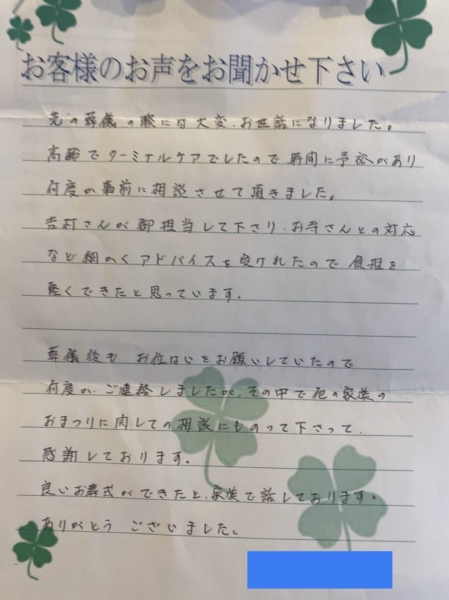 お客様のお声をお聞かせ下さい
先の葬儀の際には大変、お世話になりました。
高齢でターミナルケアでしたので時間に予裕があり
何度か事前に相談させて頂きました。
吉村さんが都担当して下さり、お寺さんとの対応
など細かくアドバイスを受けれたので負担を
軽くできたと思っています。
葬儀後も お位はいをお願いしていたので
何度か、ご連絡しましたが、その中で他の家族の
おまつりに関しての相談にものって下さって
感謝しております。
良いお葬式ができたと、家族で話しております。
ありがとう ございました。